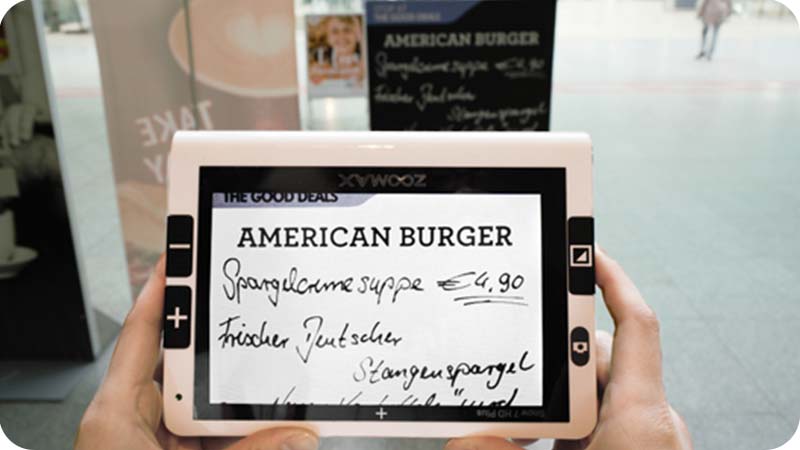 STOP AT
THE GOOD DEALS
AMERICAN BURGER
Spargelcremesuppe €4,90
Frischer Deutscher
Stangenspargel
TAKE
ZOOMAX
THE GOOD DEALS
AMERICAN BURGER
Spargelcremesuppe €4,90
Frischer Deutscher
Stangenspargel
Snow 7 HD Plus